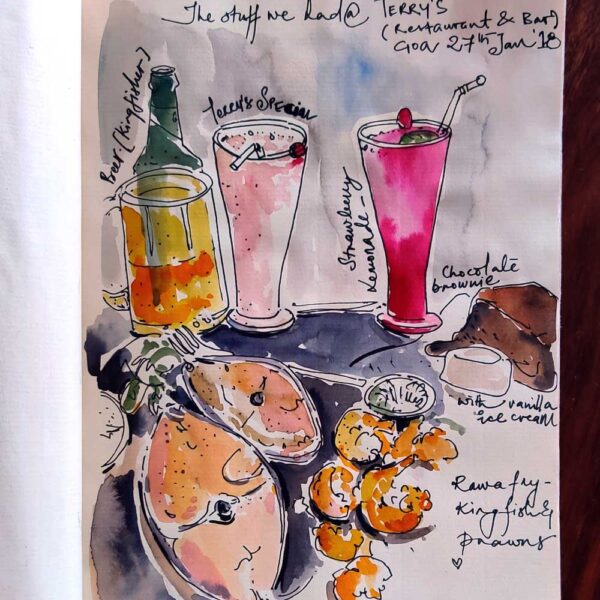 The stuff we had @ TERRY'S
(Restaurant & Bar)
GOA 27th Jan '18
Beer (Kingfisher)
Terry's Special
Strawberry
Lemonade -
Chocolate
brownie
with vanilla
ice cream
Rawa fry -
Kingfish &
prawns